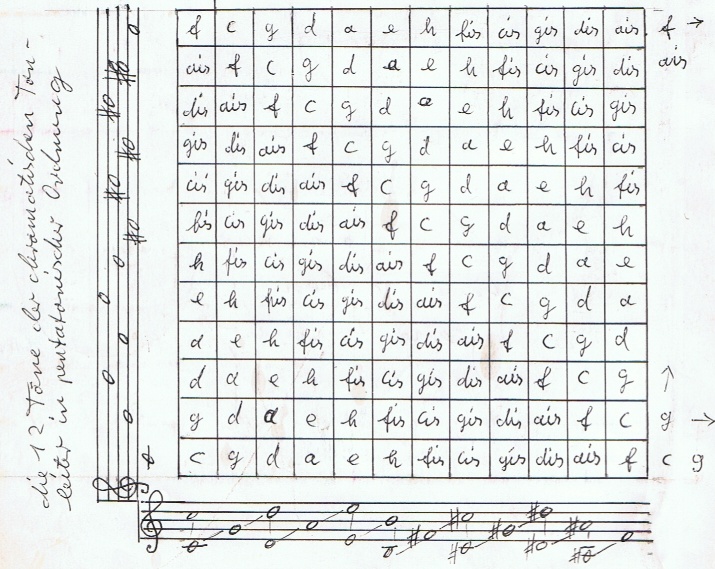 die 12 Töne der chromatischen Ton-
leiter in pentatonischer Ordnung
f c g d a e h fis cis gis dis ais f →
ais f c g d a e h fis cis gis dis ais
dis ais f c g d a e h fis cis gis
gis dis ais f c g d a e h fis cis
cis gis dis ais f c g d a e h fis
fis cis gis dis ais f c g d a e h
h fis cis gis dis ais f c g d a e
e h fis cis gis dis ais f c g d a
a e h fis cis gis dis ais f c g d
d a e h fis cis gis dis ais f c g ↑
g d a e h fis cis gis dis ais f c g →
c g d a e h fis cis gis dis ais f c g